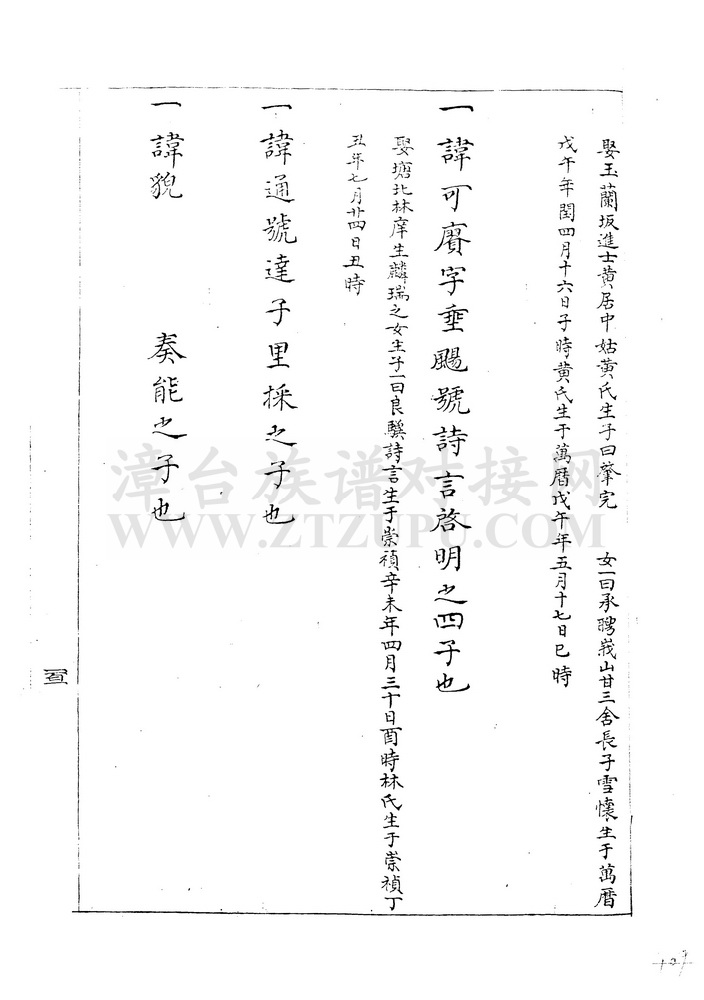 娶玉蘭坂進士黄居中姑黄氏生子曰肇完 女一曰承聘峩山甘三舍長子雪懷生于萬曆
戊午年閏四月十六日子時黄氏生于萬曆戊午年五月十七日巳時
一諱可賡字垂颺號詩言啓明之四子也
娶塘北林庠生麟瑞之女生子一曰良驥詩言生于崇禎辛未年四月三十日酉時林氏生于崇禎丁
丑年七月廿四日丑時
一諱通號達子里採之子也
一諱貌 奏能之子也
漳台族谱对接网
WWW.ZTZUPU.COM